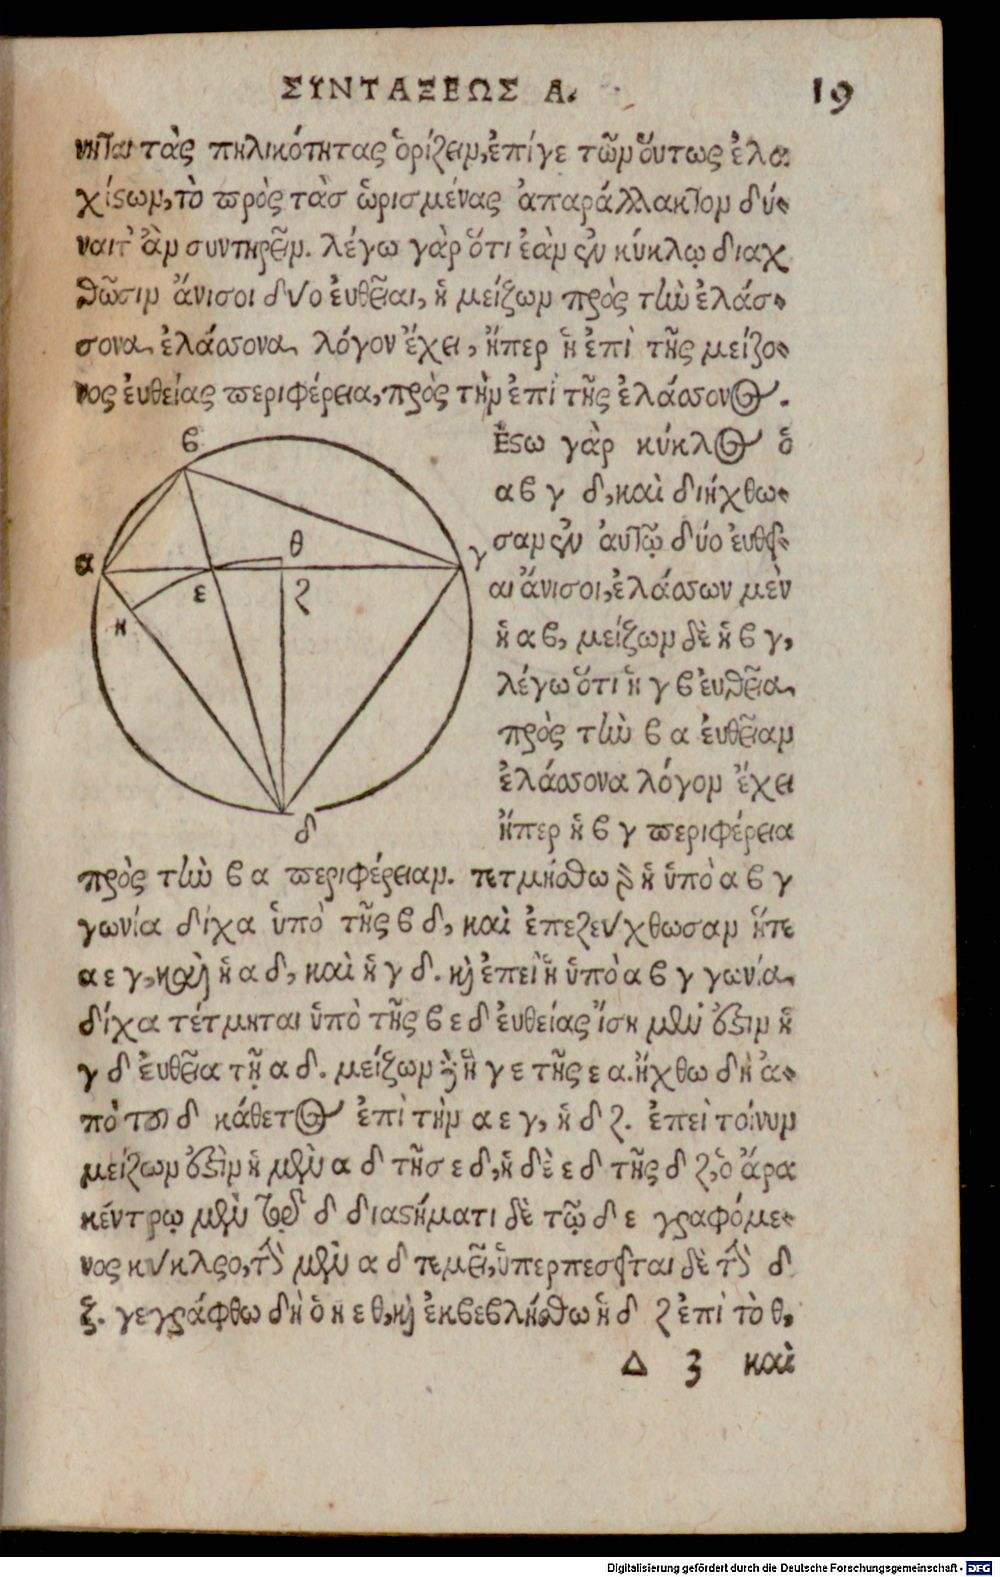 ΣΥΝΤΑΞΕΩΣ Α. 19
νηται τὰς πηλικότητας ὁρίζειν, ἐπίγε τῶν οὕτως ἐλα
χίϛων, τὸ πρὸς τὰσ ὡρισμένας ἀπαράλλακτον δύ-
ναιτ' ἂν συντηρεῖν. λέγω γὰρ ὅτι ἐὰν ἐν κύκλῳ διαχ
θῶσιν ἄνισοι δύο εὐθεῖαι, ἡ μείζων πρὸς τὴν ἐλάσ-
σονα ἐλάσσονα λόγον ἔχει, ἤπερ ἡ ἐπὶ τῆς μείζο-
νος εὐθείας περιφέρεια, πρὸς τὴν ἐπὶ τῆς ἐλάσσονος.
Ἔϛω γὰρ κύκλος ὁ
α β γ δ, καὶ διήχθω-
σαν ἐν αὐτῷ δύο εὐθεῖ-
αι ἄνισοι, ἐλάσσων μὲν
ἡ α β, μείζων δὲ ἡ β γ,
λέγω ὅτι ἡ γ β εὐθεῖα
πρὸς τὴν β α εὐθεῖαν
ἐλάσσονα λόγον ἔχει
ἤπερ ἡ β γ περιφέρεια
β
α
θ
γ
ε
ζ
κ
δ
πρὸς τὴν β α περιφέρειαν. τετμήσθω γὰρ ἡ ὑπὸ α β γ
γωνία δίχα ὑπὸ τῆς β δ, καὶ ἐπεζεύχθωσαν ἥτε
α ε γ, καὶ ἡ α δ, καὶ ἡ γ δ. καὶ ἐπεὶ ἡ ὑπὸ α β γ γωνία
δίχα τέτμηται ὑπὸ τῆς β ε δ εὐθείας ἴση μέν ἐστιν ἡ
γ δ εὐθεῖα τῇ α δ. μείζων δὲ ἡ γ ε τῆς ε α. ἤχθω δὴ ἀ-
πὸ τοῦ δ κάθετος ἐπὶ τὴν α ε γ, ἡ δ ζ. ἐπεὶ τοίνυν
μείζων ἐστὶν ἡ μὲν α δ τῆσ ε δ, ἡ δὲ ε δ τῆς δ ζ, ὁ ἄρα
κέντρῳ μὲν τῷ δ διαϛήματι δὲ τῷ δ ε γραφόμε-
νος κύκλος, τὴν μὲν α δ τεμεῖ, ὑπερπεσεῖται δὲ τὴν δ
ξ. γεγράφθω δὴ ὁ η ε θ, καὶ ἐκβεβλήσθω ἡ δ ζ ἐπὶ τὸ θ,
Δ 3 καὶ
Digitalisierung gefördert durch die Deutsche Forschungsgemeinschaft - DFG